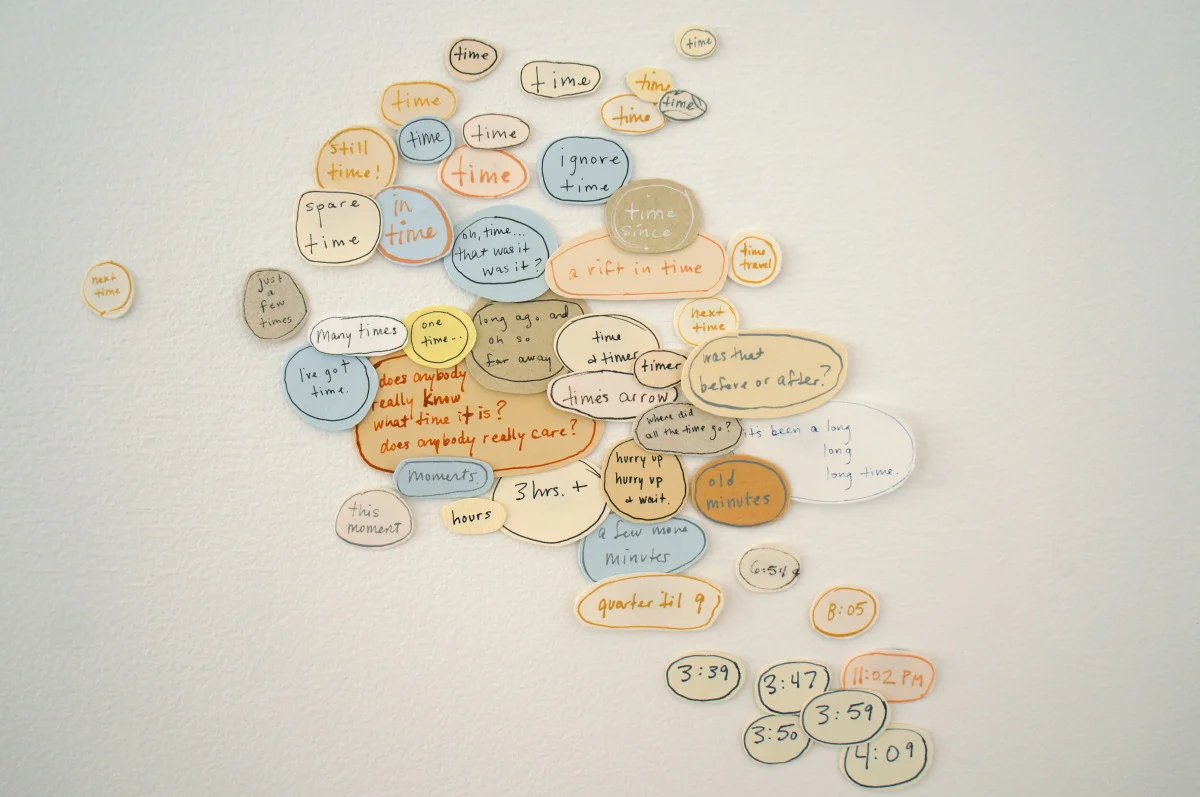 time
time
time
time
time
time
time
time
time
time
still
time!
time
ignore
time
spare
time
in
time
oh, time...
that was it
was it?
time
since
a rift in time
time
travel
next
time
just
a
few
times
Many times
one
time...
long ago and
oh so
far away
time
& timer
next
time
timer
was that
before or after?
I've got
time.
does anybody
really know
what time it is?
does anybody really care?
time's arrow
where did
all the time go?
it's been a long
long
long time.
moments.
this
moment
hours
3 hrs. +
hurry up
hurry up
& wait.
old
minutes
a few more
minutes
quarter til 9
6:54
8:05
3:39
3:47
11:02 PM
3:59
3:50
4:09